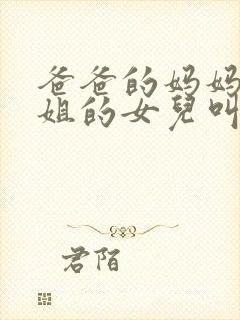 爸爸的妈妈
姐的女兒叫
君陌